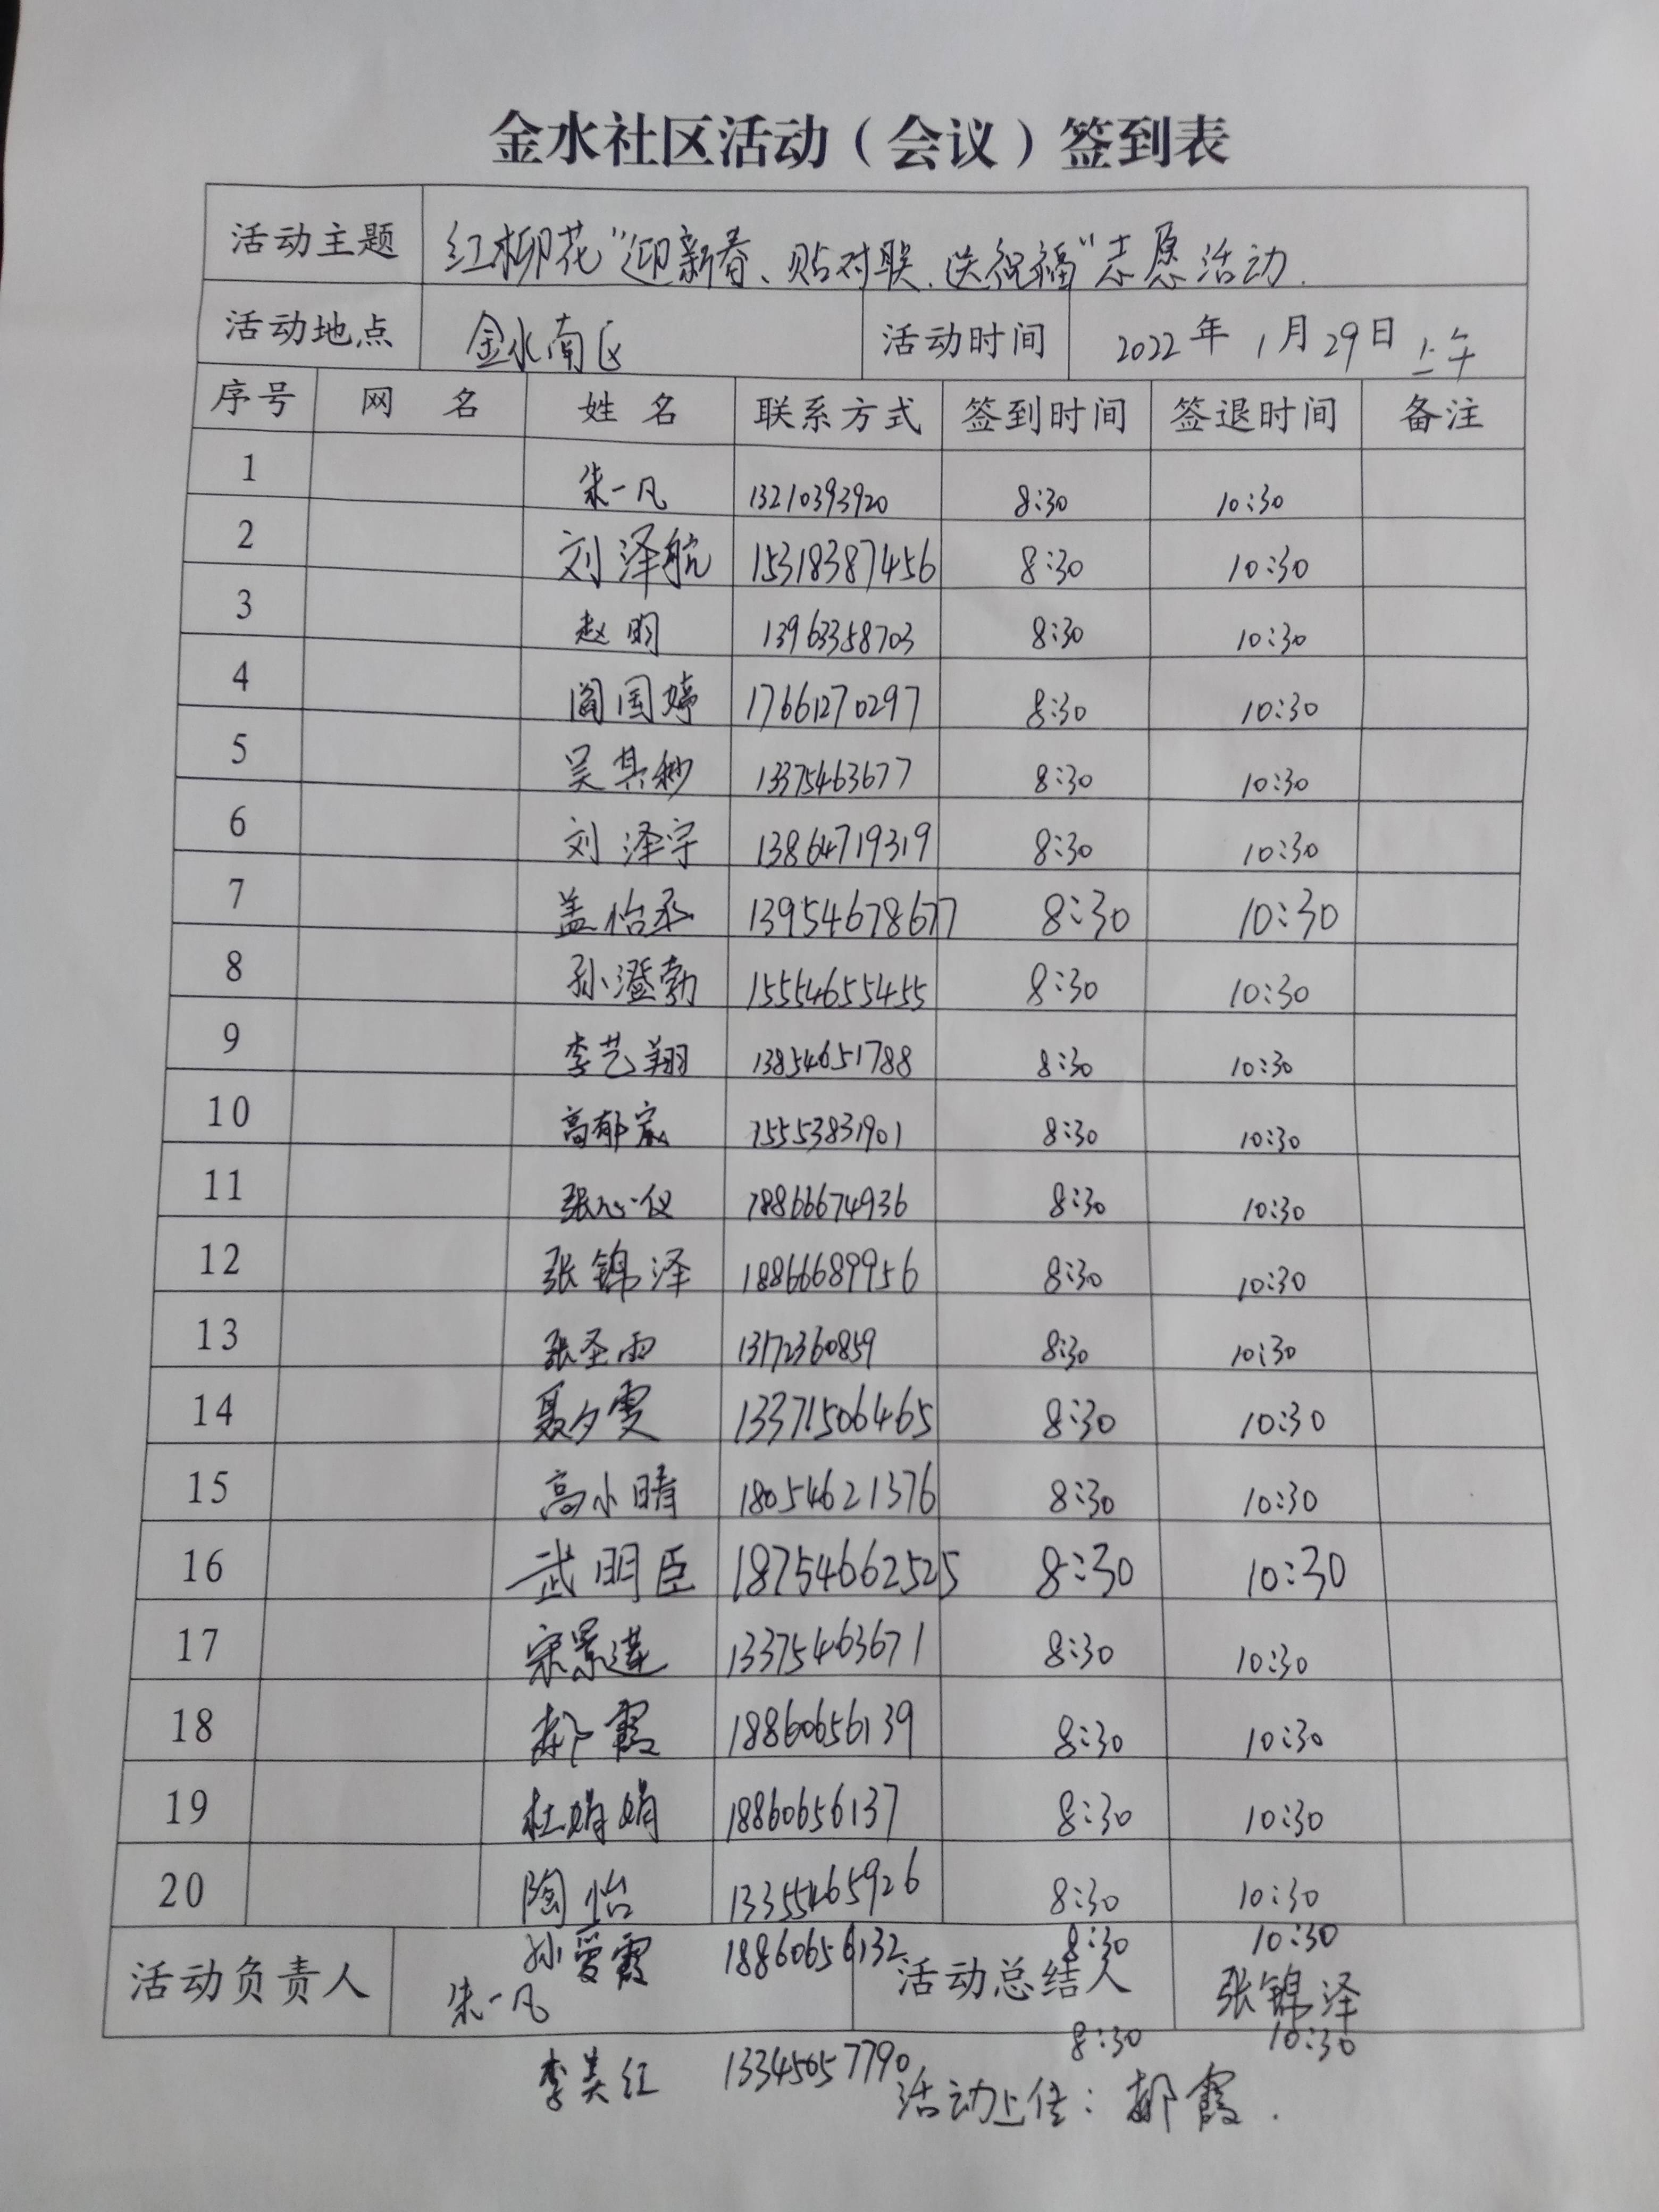 金水社区活动（会议）签到表
活动主题 红柳花“迎新春、贴对联、送祝福”志愿活动.
活动地点 金水南区 活动时间 2022年1月29日 上午
序号 网 名 姓 名 联系方式 签到时间 签退时间 备注
1 朱一凡 13210393920 8:30 10:30
2 刘泽航 15318387456 8:30 10:30
3 赵明 13963358703 8:30 10:30
4 阎国婷 17661270297 8:30 10:30
5 吴其秒 13375463677 8:30 10:30
6 刘泽宇 13864719319 8:30 10:30
7 盖怡丞 13954678677 8:30 10:30
8 孙澄勃 15554655455 8:30 10:30
9 李艺翔 13854651788 8:30 10:30
10 高郁宸 15553831901 8:30 10:30
11 张心仪 18866674936 8:30 10:30
12 张锦泽 18866689956 8:30 10:30
13 张圣雨 13172360859 8:30 10:30
14 聂夕雯 13371506465 8:30 10:30
15 高小晴 18054621376 8:30 10:30
16 武明臣 18754662525 8:30 10:30
17 宋景莲 13375463671 8:30 10:30
18 郝霞 18860656139 8:30 10:30
19 杜娟娟 18860656137 8:30 10:30
20 陶怡 13355465926 8:30 10:30
孙爱霞 18860656132 8:30 10:30
活动负责人 朱一凡 活动总结人 张锦泽
李美红 13345057790 8:30 10:30
活动上传：郝霞.